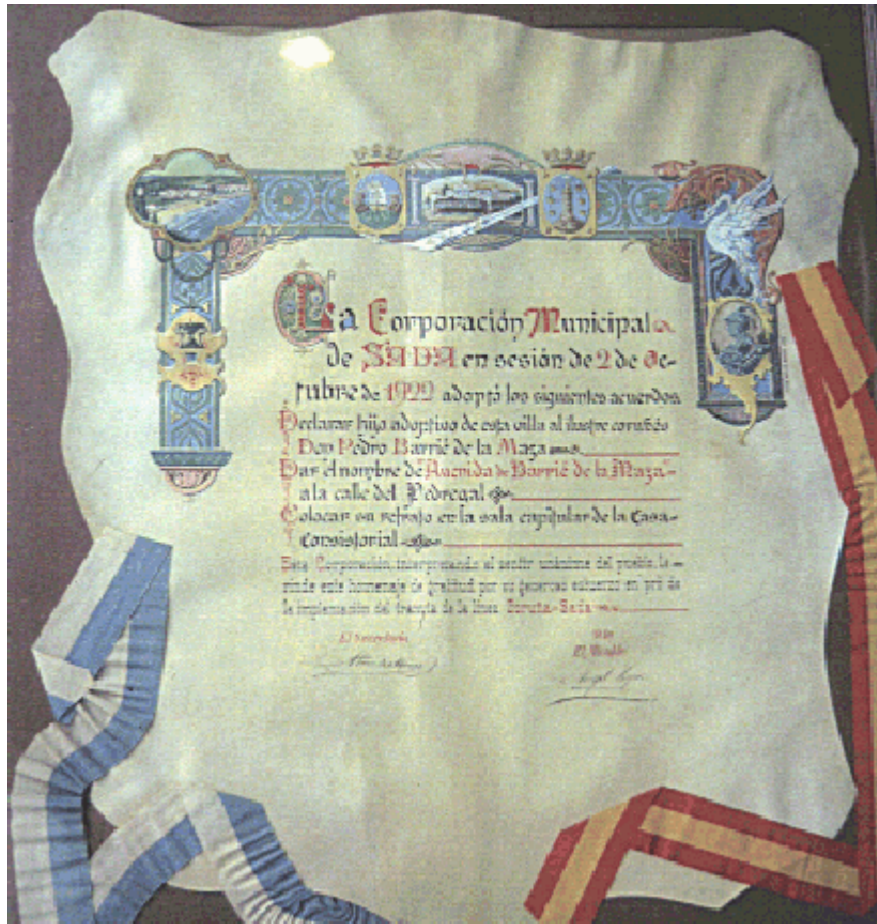 La Corporación Municipal
de SADA en sesión de 2 de Oc-
tubre de 1922 adoptó los siguientes acuerdos
Declarar hijo adoptivo de esta villa al ilustre coruñés
Don Pedro Barrié de la Maza
Dar el nombre de "Avenida de Barrié de la Maza"
a la calle del Pedregal
Colocar su retrato en la sala capitular de la Casa-
Consistorial
Esta Corporación, interpretando el sentir unánime del pueblo, le
rinde este homenaje de gratitud por su generoso esfuerzo en pró de
la implantación del tranvía de la línea Coruña-Sada
El Secretario
El Alcalde